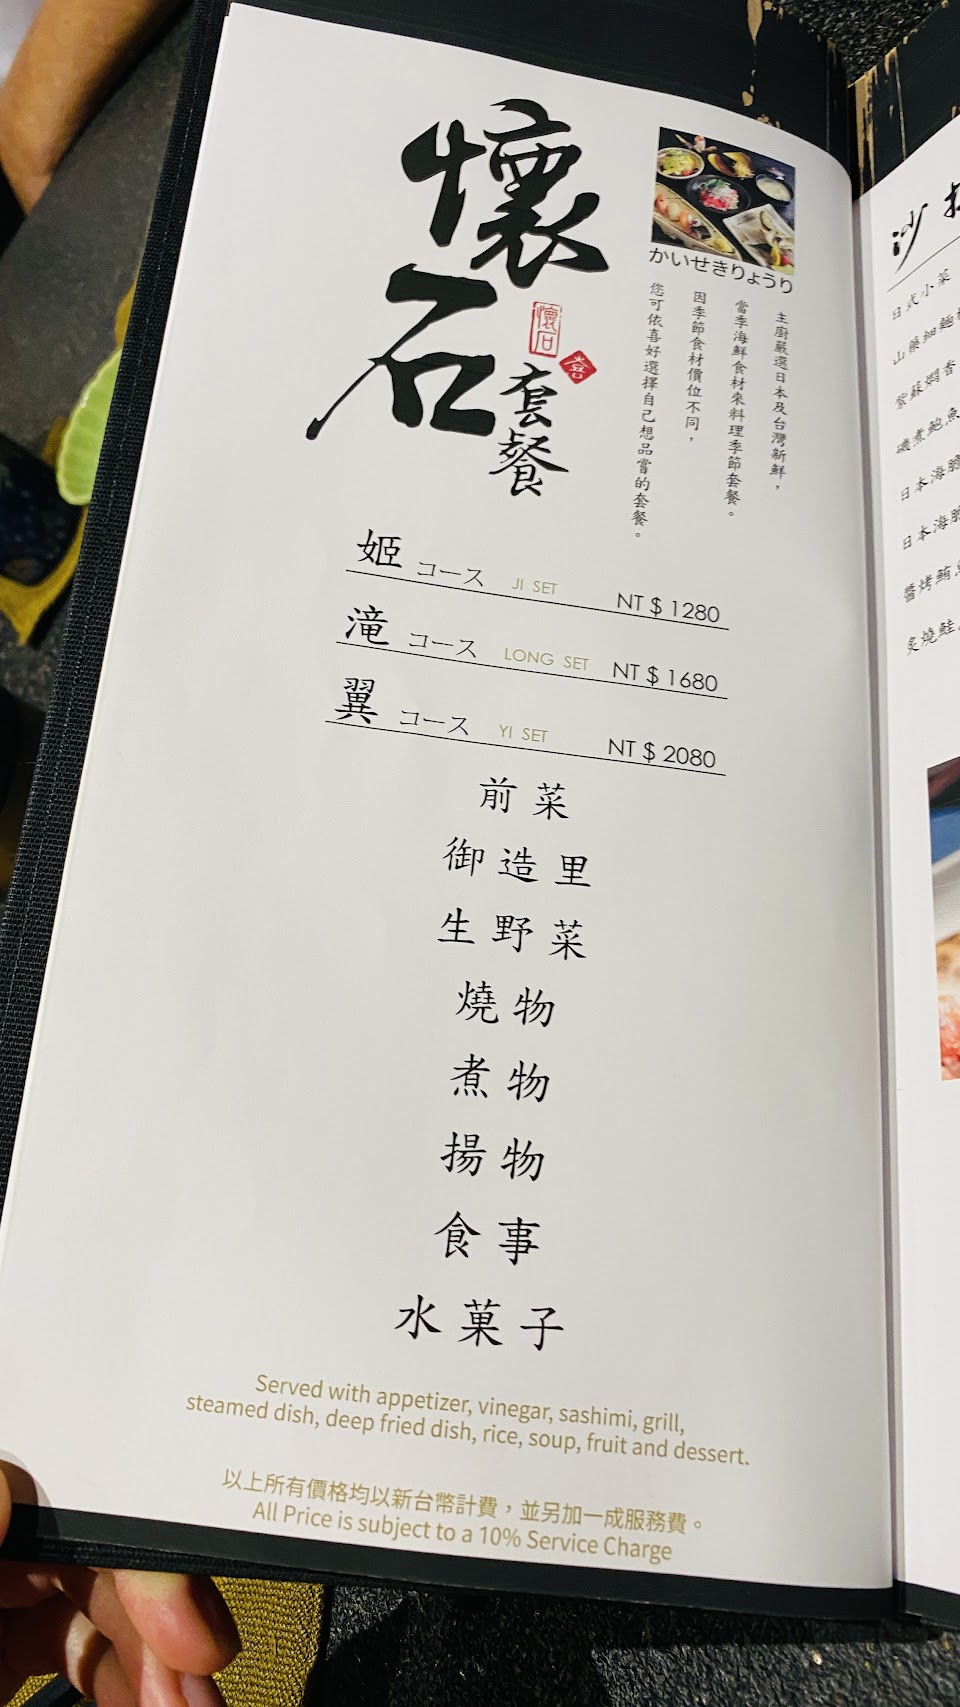 懷石
套餐
懷石
かいせきりょうり
主廚嚴選日本及台灣新鮮，
當季海鮮食材來料理季節套餐。
因季節食材價位不同，
您可依喜好選擇自己想品嘗的套餐。
姬 コース JI SET NT $ 1280
滝 コース LONG SET NT $ 1680
翼 コース YI SET NT $ 2080
前菜
御造里
生野菜
燒物
煮物
揚物
食事
水菓子
Served with appetizer, vinegar, sashimi, grill,
steamed dish, deep fried dish, rice, soup, fruit and dessert.
以上所有價格均以新台幣計費，並另加一成服務費。
All Price is subject to a 10% Service Charge
沙
日式小菜
山藥細麵
紫蘇燜香
磯煮鮑魚
日本海膽
日本海膽
醬烤鮪
炙燒鮭